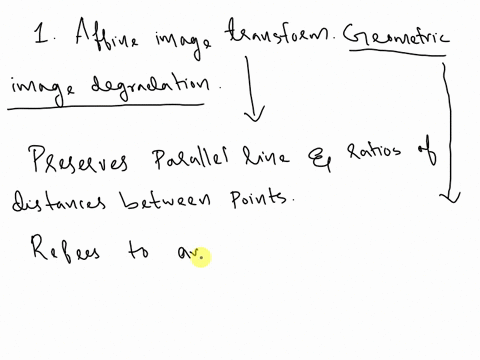 1. Affine image transform. Geometric
image degradation.
Preserves Parallel line & ratios of
distances between points.
Refees to an